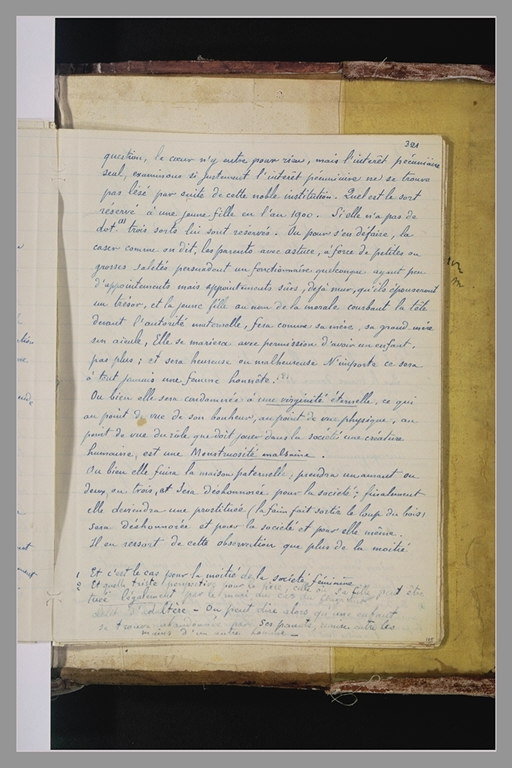 321
question, le cœur n'y entre pour rien, mais l'intérêt pécuniaire
seul, examinons si justement l'intérêt pécuniaire ne se trouve
pas lésé par suite de cette noble institution. Quel est le sort
réservé à une jeune fille en l'an 1900. Si elle n'a pas de
dot (1) trois sorts lui sont reservés. Ou pour s'en défaire, la
caser comme on dit, les parents avec astuce, à force de petites ou
grosses saletés persuadent un fonctionnaire quelconque ayant peu
d'appointements mais appointements sûrs, déjà mur, qu'ils épouseront
un trésor, et la jeune fille au nom de la morale courbant la tête
devant l'autorité maternelle, fera comme sa mère, sa grand-mère
son aieule, Elle se mariera avec permission d'avoir un enfant,
pas plus ; et sera heureuse ou malheureuse N'importe ce sera
à tout jamais une femme honnête. (2)
Ou bien elle sera condamnée à une virginité éternelle, ce qui
au point de vue de son bonheur, au point de vue physique, au
point de vue du rôle que doit jouer dans la société une créature
humaine, est une Monstruosité malsaine.
Ou bien elle fuira la maison paternelle, prendra un amant ou
deux, ou trois, et sera déshonnorée pour la société ; finalement
elle deviendra une prostituée (la faim fait sortir le loup du bois)
sera déshonnorée et pour la société et pour elle même.
Il en ressort de cette observation que plus de la moitié
1 Et c'est le cas pour la moitié de la société féminine
2 Et quelle triste perspective pour le père, celle où sa fille peut être
tuée légalement par le mari au cas du flagrant
délit d'adultère – On peut dire alors qu'une enfant
se trouve abandonnée par ses parents, remise entre les
mains d'un autre homme –